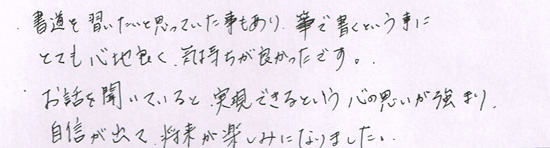 ・書道を習いたいと思っていた事もあり、筆で書くという事に
とても心地良く、気持ちが良かったです。
・お話を聞いていると、実現できるという心の思いが強まり、
自信が出て、将来が楽しみになりました。